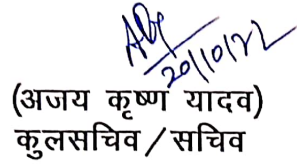 20/10/22
(अजय कृष्ण यादव)
कुलसचिव / सचिव